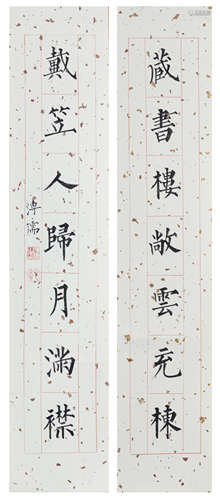 藏書樓敞雲充棟
戴笠人歸月滿襟
溥儒